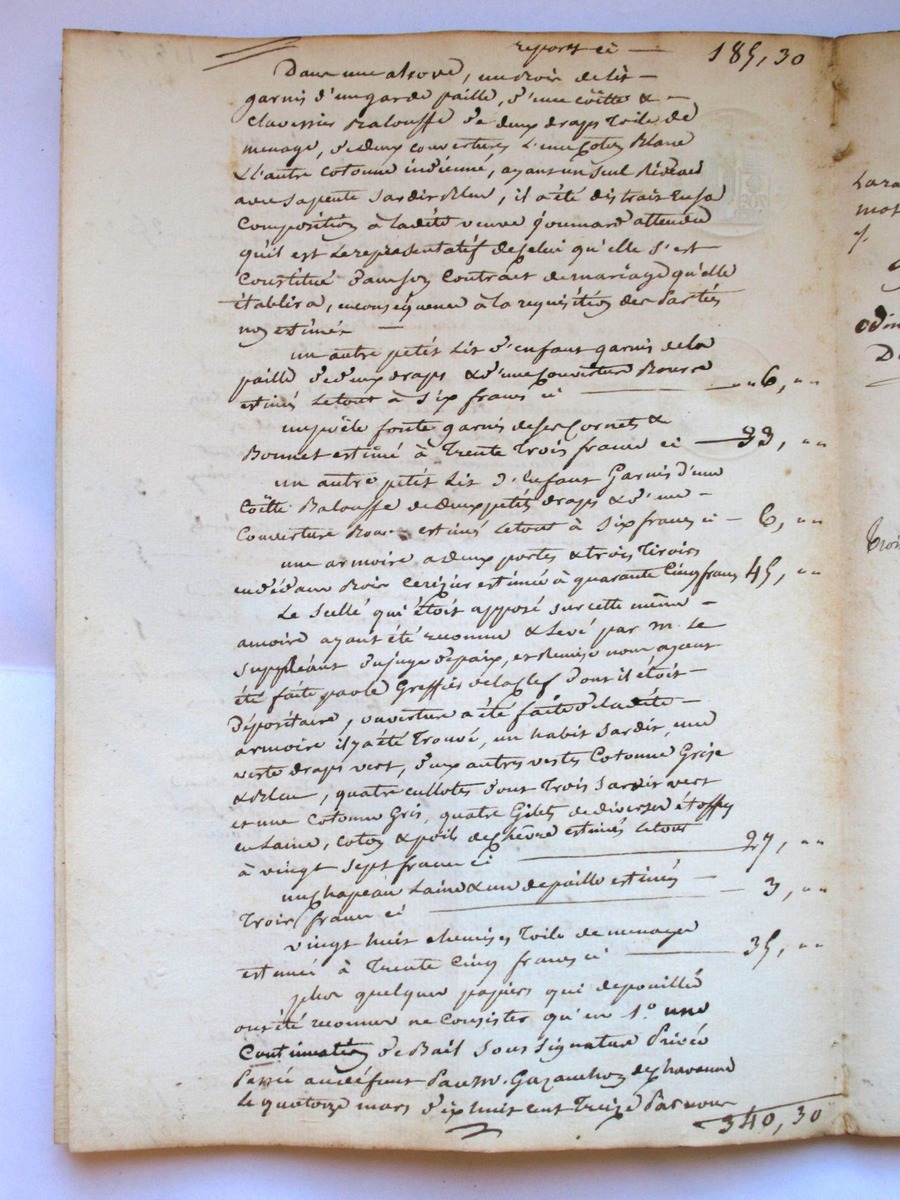 report ci — 185,30
Dans une alcove, un bois de lit —
garnis d'un garde paille, d'une coëtte & —
Clavessier Balouffe de deux draps Toile de
menage, de deux couvertures l'une Coton Blanc
& l'autre cotonne indienne, ayant un seul Rideau
avec sa pente Sardis Bleu, il a été distrait en sa
Composition à ladite veuve Gonnard attendu
qu'il est Le représentatif de celui qu'elle s'est
Constitué dans son Contrat de mariage qu'elle
Etablira, en conséquence à la requisition des Parties
non estimé —
un autre petit Lit d'enfant garnis de la
paille de deux draps & d'une Couverture Bourre
estimés Le tout à Six francs ci — "" 6, ""
un poële fonte garnis de ses Cornets &
Bonnet estimé à Trente Trois francs ci — 33, ""
un autre petit Lit d'Enfant Garnis d'une
Coëtte Balouffe de deux petits draps & d'une —
Couverture Bourre estimés Le tout à Six francs ci — 6, ""
une armoire a deux portes & trois Tiroirs
en dedans Bois Cerizier estimée à quarante Cinq francs 45, ""
Le Scellé qui étoit apposé sur cette même —
armoire ayant été reconnu & Levé par m. Le
Suppléant du juge de paix, et Remise nous ayant
été faite par le Greffier de la Clef dont il étoit —
Dépositaire, ouverture a été faite de ladite —
armoire il y a été Trouvé, un habit Sardis, une
veste draps vert, deux autres vestes Cotonne Grise
& Bleu, quatre cullotes dont Trois Sardis vert
et une Cotonne Gris, quatre Gilets de diverses étoffes
en Laine, Coton & poils de Chèvre estimés Le tout
à vingt Sept francs ci — 27, ""
un Chapeau Laine & un de paille estimés —
Trois francs ci — 3, ""
vingt huit chemises Toile de menage
estimées à Trente Cinq francs ci — 35, ""
plus quelques papiers qui depouillés
ont été reconnus ne Consister qu'en 1.º une
Continuation de Bail Sous Signature Privée
Passée au défunt Par M. Gazanchon de Chavanne
Le quatorze mars dix huit cent Treize Par nous
340,30